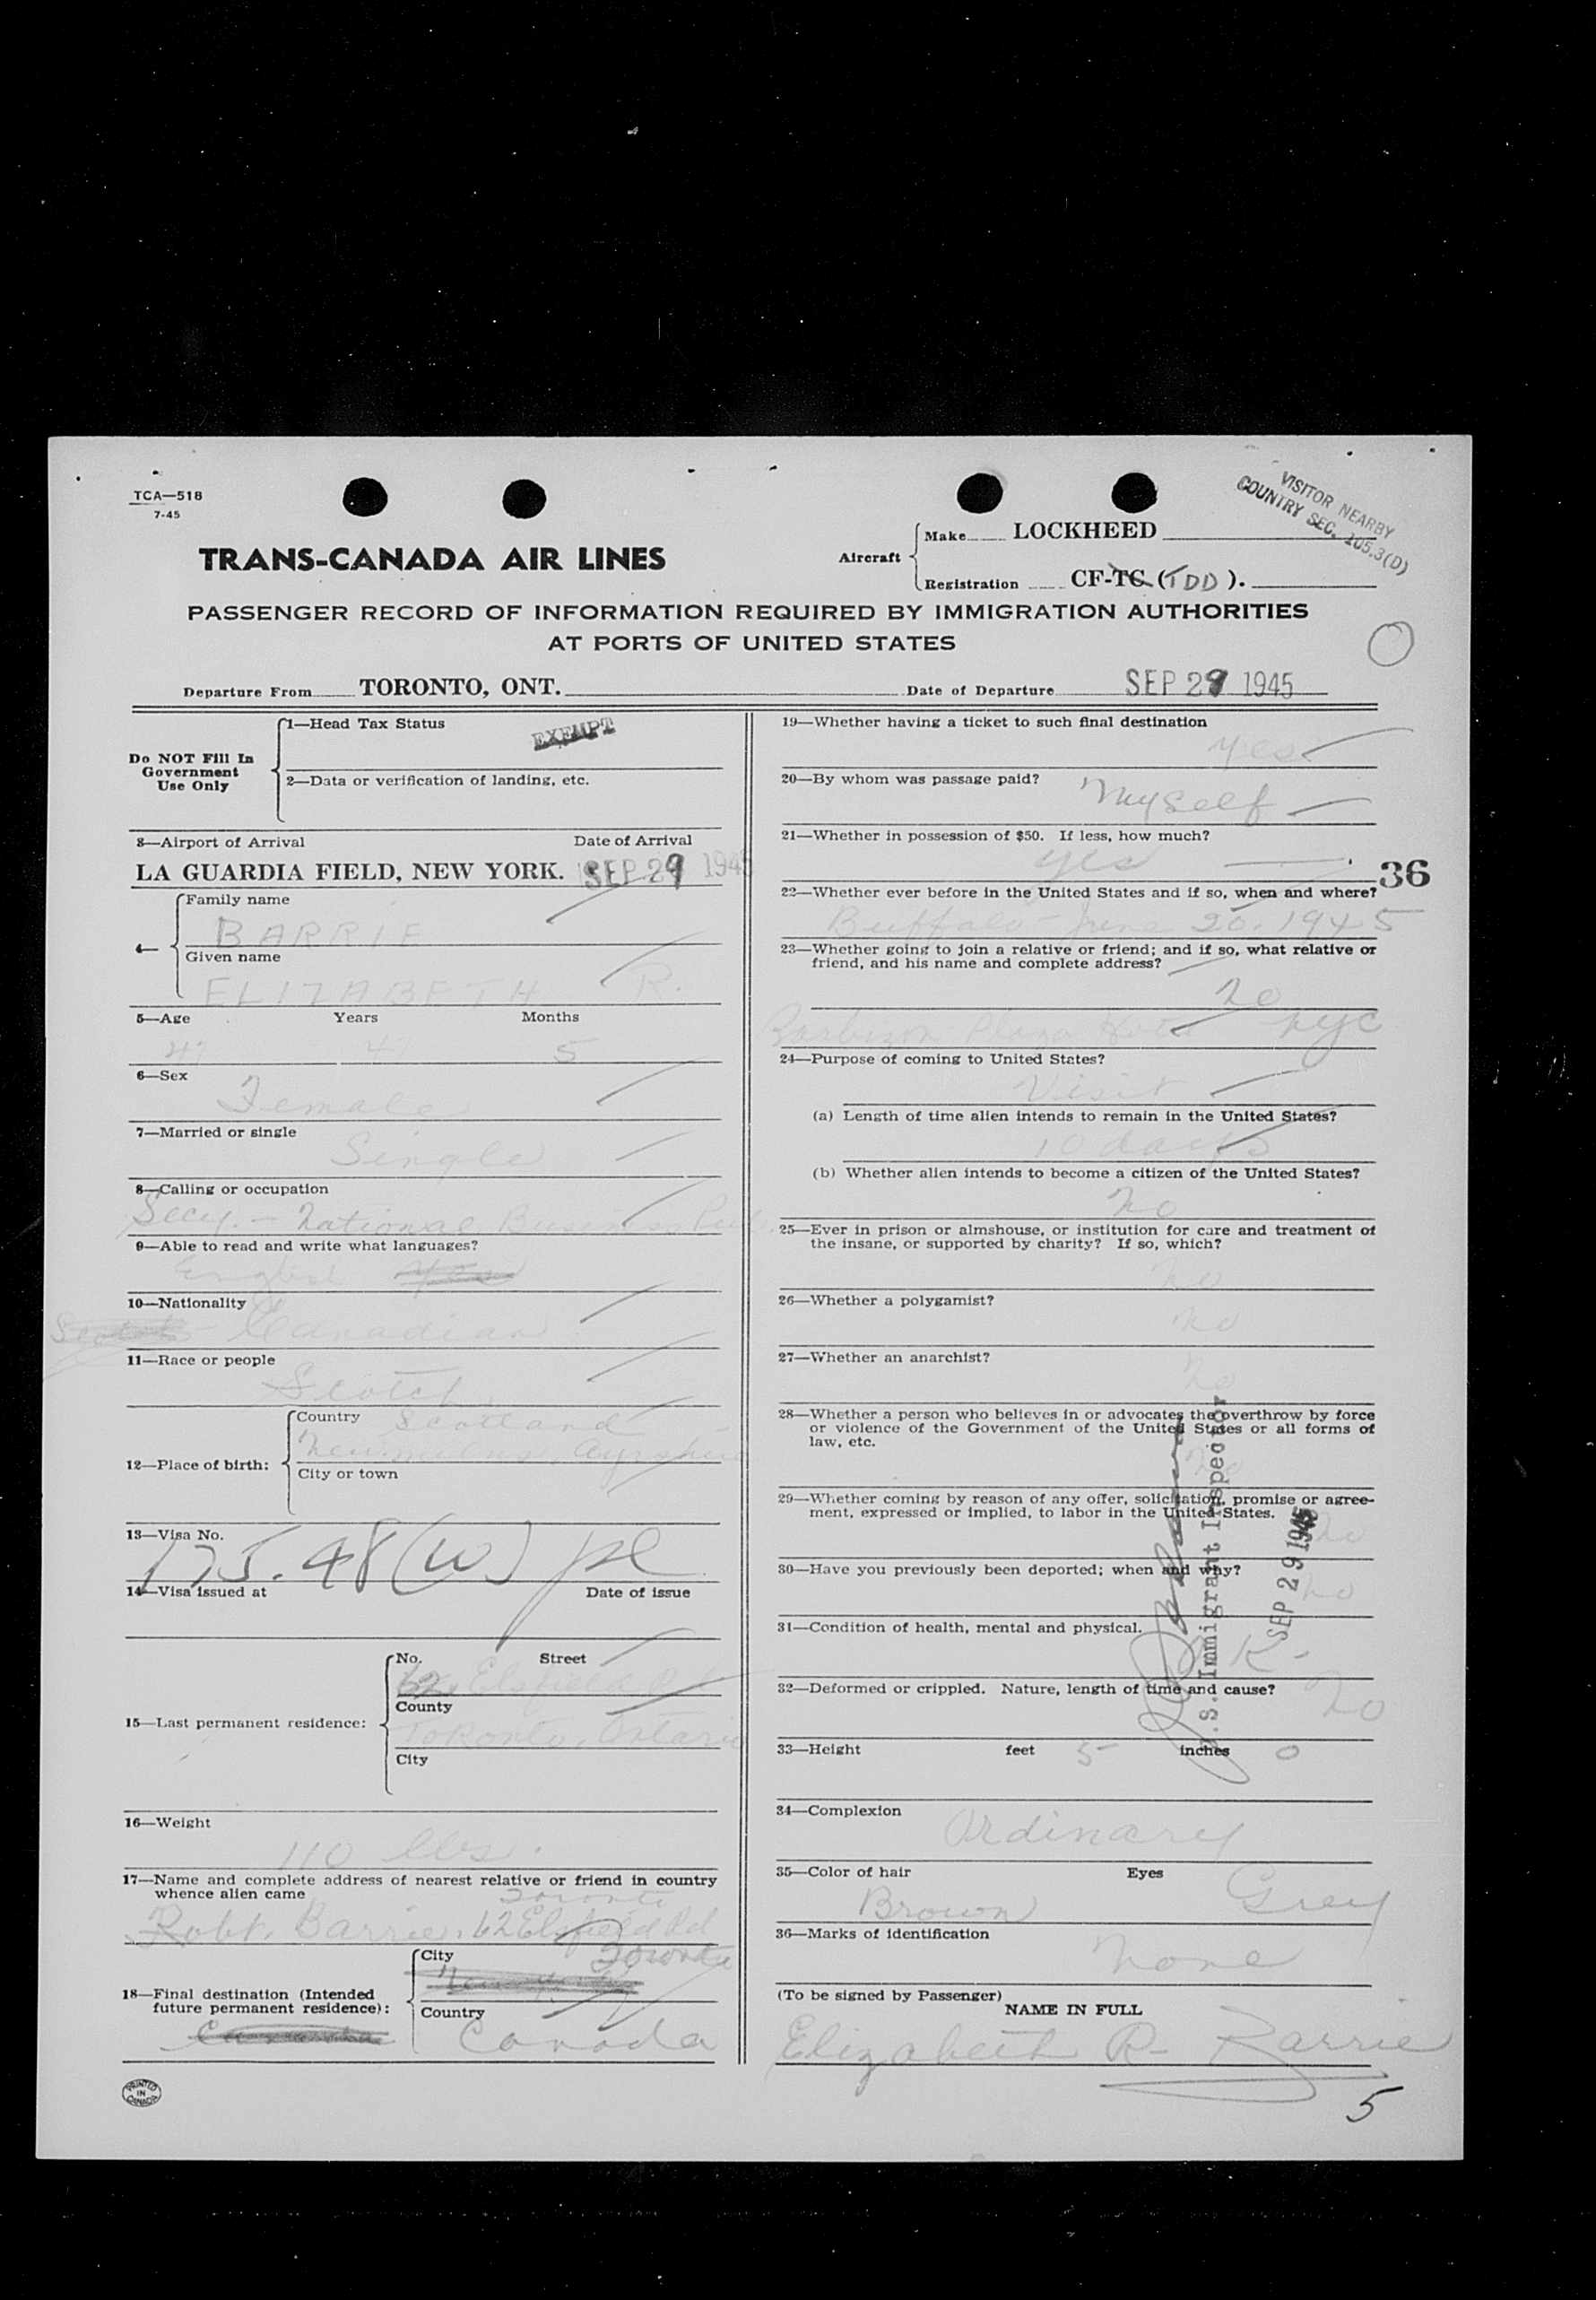 TCA—518
7-45
VISITOR NEARBY
COUNTRY SEC. 105.3(D)
TRANS-CANADA AIR LINES
Aircraft
Make LOCKHEED
Registration CF-TC (TDD).
PASSENGER RECORD OF INFORMATION REQUIRED BY IMMIGRATION AUTHORITIES
AT PORTS OF UNITED STATES
Departure From TORONTO, ONT. Date of Departure SEP 29 1945
Do NOT Fill In
Government
Use Only
1—Head Tax Status EXEMPT
2—Data or verification of landing, etc.
3—Airport of Arrival Date of Arrival
LA GUARDIA FIELD, NEW YORK. SEP 29 1945
4—
Family name
BARRIE
Given name
ELIZABETH R.
5—Age Years Months
47 47 5
6—Sex
Female
7—Married or single
Single
8—Calling or occupation
Secy. - National Business
9—Able to read and write what languages?
English Yes
10—Nationality
Scotch Canadian
11—Race or people
Scotch
12—Place of birth:
Country Scotland
Newmilns, Ayrshire
City or town
13—Visa No.
175.48 (W)
14—Visa issued at Date of issue
15—Last permanent residence:
No. Street
62
County
Toronto, Ontario
City
16—Weight
110 lbs.
17—Name and complete address of nearest relative or friend in country
whence alien came
Toronto
Robt. Barrie, 62 Rd
18—Final destination (Intended
future permanent residence):
City Toronto
New York
Country
Canada Canada
PRINTED
IN
CANADA
19—Whether having a ticket to such final destination
yes
20—By whom was passage paid?
Myself
21—Whether in possession of $50. If less, how much?
yes
36
22—Whether ever before in the United States and if so, when and where?
Buffalo - June 20, 1945
23—Whether going to join a relative or friend; and if so, what relative or
friend, and his name and complete address?
No
Barbizon Plaza Hotel NYC
24—Purpose of coming to United States?
Visit
(a) Length of time alien intends to remain in the United States?
10 days
(b) Whether alien intends to become a citizen of the United States?
No
25—Ever in prison or almshouse, or institution for care and treatment of
the insane, or supported by charity? If so, which?
No
26—Whether a polygamist?
No
27—Whether an anarchist?
No
28—Whether a person who believes in or advocates the overthrow by force
or violence of the Government of the United States or all forms of
law, etc.
No
29—Whether coming by reason of any offer, solicitation, promise or agree-
ment, expressed or implied, to labor in the United States.
No
30—Have you previously been deported; when and why?
No
31—Condition of health, mental and physical.
O.K.
U.S. Immigrant Inspector
SEP 29 1945
32—Deformed or crippled. Nature, length of time and cause?
No
33—Height feet 5 inches 0
34—Complexion
Ordinary
35—Color of hair Eyes
Brown Grey
36—Marks of identification
None
(To be signed by Passenger)
NAME IN FULL
Elizabeth R. Barrie
5